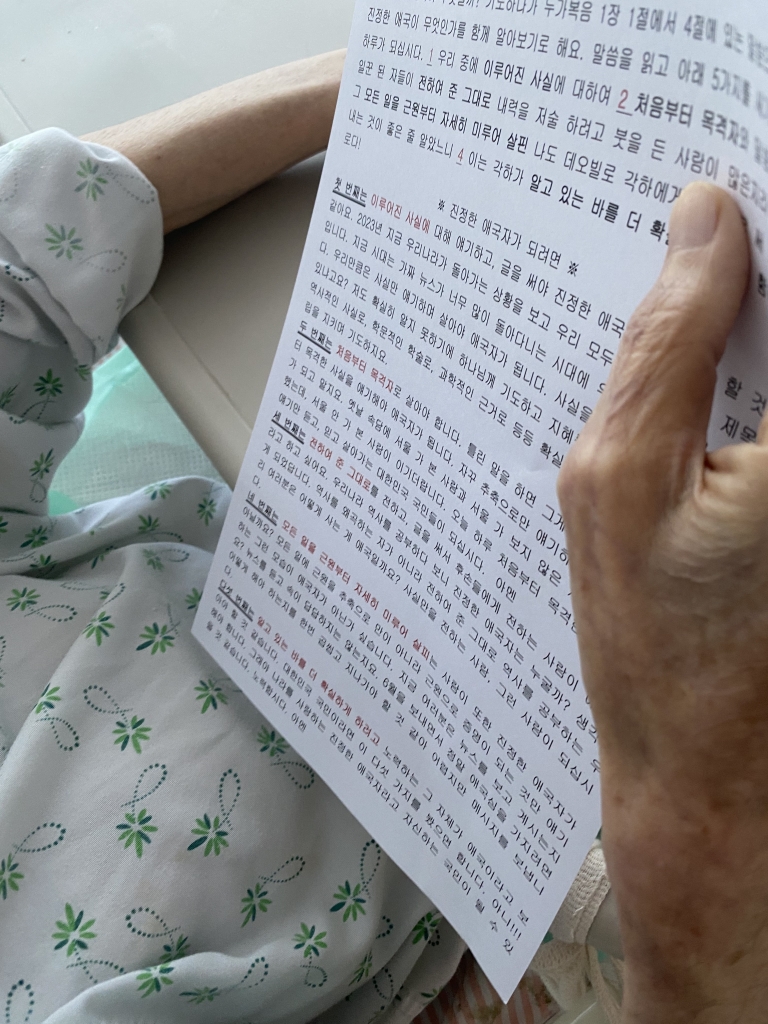 기도하다가 누가복음 1장 1절에서 4절에 있는 말씀
진정한 애국이 무엇인가를 함께 알아보기로 해요. 말씀을 읽고 아래 5가지를
하루가 되십시다. 1 우리 중에 이루어진 사실에 대하여 2 처음부터 목격자와
일꾼 된 자들이 전하여 준 그대로 내력을 저술 하려고 붓을 든 사람이
그 모든 일을 근원부터 자세히 미루어 살핀 나도 데오빌로 각하에게
내는 것이 좋은 줄 알았노니 4 이는 각하가 알고 있는 바를 더
로다!
※ 진정한 애국자가 되려면 ※
첫 번째는 이루어진 사실에 대해 얘기하고, 글을 써야 진정한
같아요. 2023년 지금 우리나라가 돌아가는 상황을 보고 우리 모두
입니다. 지금 시대는 가짜 뉴스가 너무 많이 돌아다니는 시대에
다. 우리만큼은 사실만 얘기하며 살아야 애국자가 됩니다. 사실을
있냐고요? 저도 확실히 알지 못하기에 하나님께 기도하고
역사적인 사실로, 학문적인 학술로, 과학적인 근거로 등등
입을 지키며 기도하지요.
두 번째는 처음부터 목격자로 살아야 합니다. 틀린 말을 하면
터 목격한 사실을 얘기해야 애국자가 됩니다. 자꾸 추측으로만
가 되고 말지요. 옛날 속담에 서울 가 본 사람과 서울 가 보지 않은
했는데. 서울 안 가 본 사람이 이기더랍니다. 오늘 하루 처음부터
얘기만 듣고, 믿고 살아가는 대한민국 국민들이 되십시다. 아멘
세 번째는 전하여 준 그대로를 전하고, 글을 써서 후손들에게 전하는 사람이
라고 하고 싶어요. 우리나라 역사를 공부하다 보니 진정한 애국자는 누굴까?
게 되었답니다. 역사를 왜곡하는 자가 아니라 전하여 준 그대로 역사를 공부하는
리 여러분은 어떻게 사는 게 애국일까요? 사실만을 전하는 사람. 그런 사람이 되십시
다.
네 번째는 모든 일을 근원부터 자세히 미루어 살피는 사람이 또한 진정한 애국자가
아닐까요? 모든 일에 근원을 추측으로 만이 아니라 근원으로 증명이 되는 것만 얘기
하는 그런 모습이 애국자가 아닌가 싶습니다. 지금 여러분은 뉴스를 보고 계시는지
요? 뉴스를 듣고 속이 답답하지는 않는지요. 6월을 보내면서 정말 애국심을 가지려면
어떻게 해야 하는지를 한번 곱씹고 지나가야 할 것 같아 어렵지만 메시지를 보냅니
다.
다섯 번째는 알고 있는 바를 더 확실하게 하려고 노력하는 그 자체가 애국이라고 보
아야 할 것 같습니다. 대한민국 국민이라면 이 다섯 가지를 봤으면 합니다. 아니!!!
해야 합니다. 그래야 나라를 사랑하는 진정한 애국자라고 자신하는 국민이 될 수 있
을 것 같습니다. 노력합시다. 아멘
할 것
제목